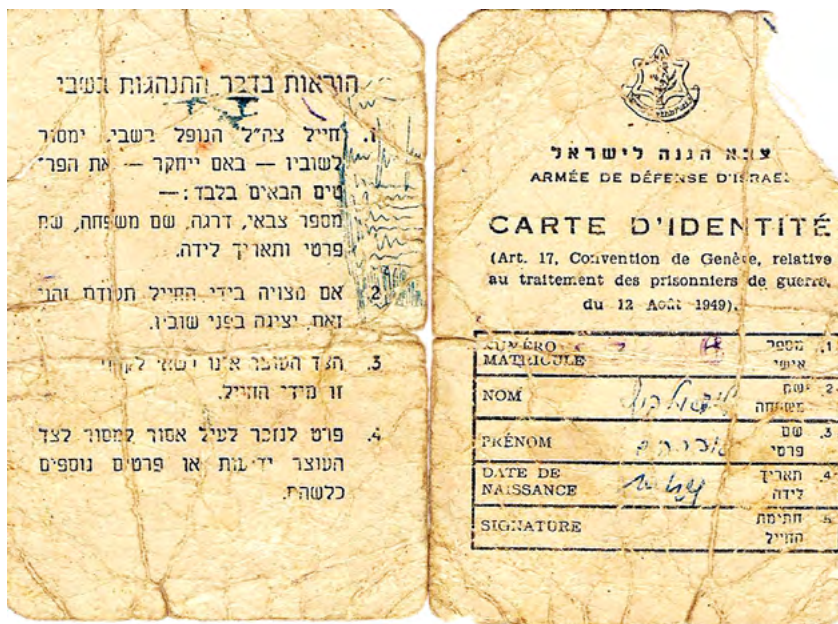 הוראות בדבר התנהגות בשבי
1. חייל צה"ל הנופל בשבי, ימסור
לשוביו — באם ייחקר — את הפר־
טים הבאים בלבד:—
מספר צבאי, דרגה, שם משפחה, שם
פרטי ותאריך לידה.
2. אם מצויה בידי החייל תעודת זהוי
זאת, יציגה בפני שוביו.
3. הצד העוצר אינו רשאי
זו מידי החייל.
4. פרט לנזכר לעיל אסור למסור לצד
העוצר ידיעות או פרטים נוספים
כלשהם.
צבא הגנה לישראל
ARMÉE DE DÉFENSE D'ISRAEL
CARTE D'IDENTITÉ
(Art. 17, Convention de Genève, relative
au traitement des prisonniers de guerre,
du 12 Août 1949).
NUMÉRO MATRICULE 1. מספר אישי
NOM 2. שם משפחה
PRÉNOM 3. שם פרטי
DATE DE NAISSANCE 4. תאריך לידה
SIGNATURE 5. חתימת החייל